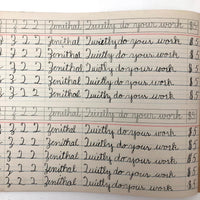 2 2 Zenithal Quietly do your work $5
2 2 Zenithal Quietly do your work $5
2 2 Zenithal Quietly do your work $5
2 2 Zenithal Quietly do your work $5
2 2 Zenithal Quietly do your work $5
2 2 Zenithal Quietly do your work $5
2 2 Zenithal Quietly do your work $5
2 2 Zenithal Quietly do your work $5
2 2 Zenithal Quietly do your work $5
2 2 Zenithal Quietly do your work $5
2 2 Zenithal Quietly do your work $5
2 2 Zenithal Quietly do your work $5